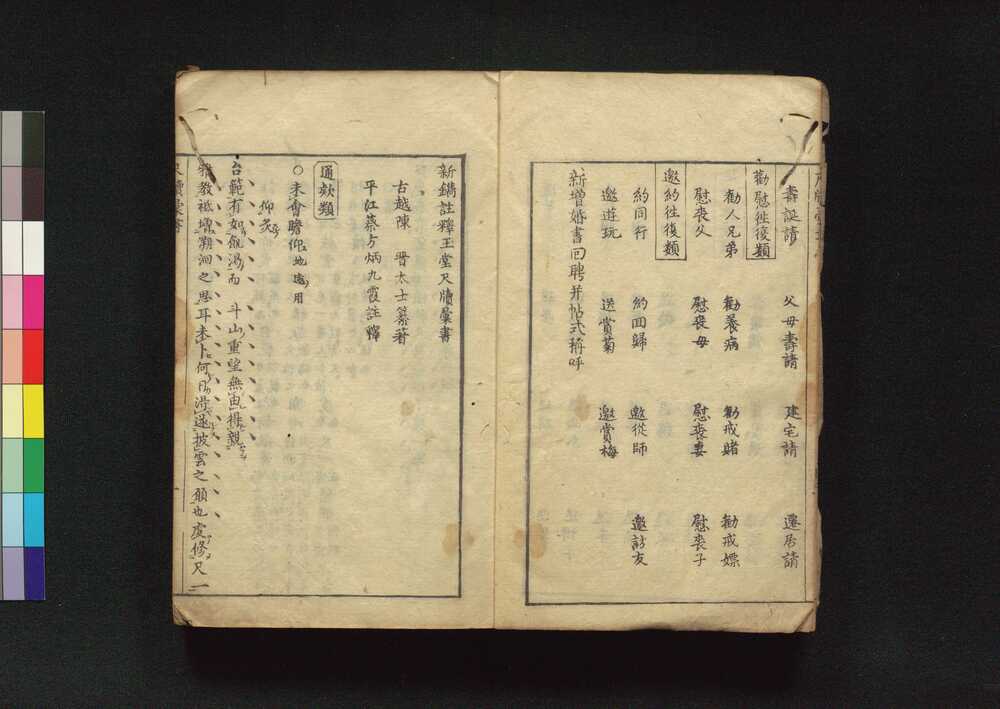 壽誕請 父母壽請 建宅請 遷居請
勸慰徃復類
勸人兄弟 勸養病 勸戒賭 勸戒嫖
慰喪父 慰喪母 慰喪妻 慰喪子
邀約徃復類
約同行 約回歸 邀從師 邀訪友
邀遊玩 送賞菊 邀賞梅
新增婚書回聘并帖式稱呼
新鐫註釋玉堂尺牘彙書
古越陳 晋太士纂著
平江蔡方炳九霞註釋
通欵類
○未會瞻仰 地遠用
仰炙
台範有如飢渴而 斗山重望無由得親
雅教祗增溯洄之思耳未卜何日得遂披雲之願也虔修尺一